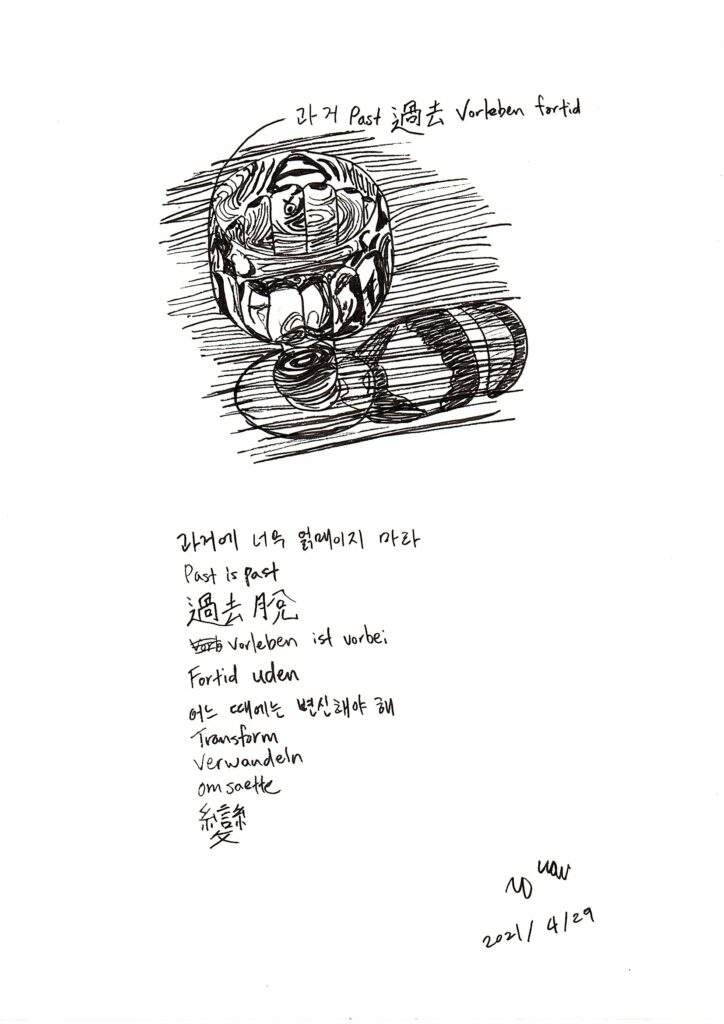 과거 Past 過去 Vorleben fortid
과거에 너무 얽매이지 마라
Past is past
過去 脫
Vorleben ist vorbei
Fortid uden
어느 때에는 변신해야 해
Transform
Verwandeln
omsaette
變
2021/4/29